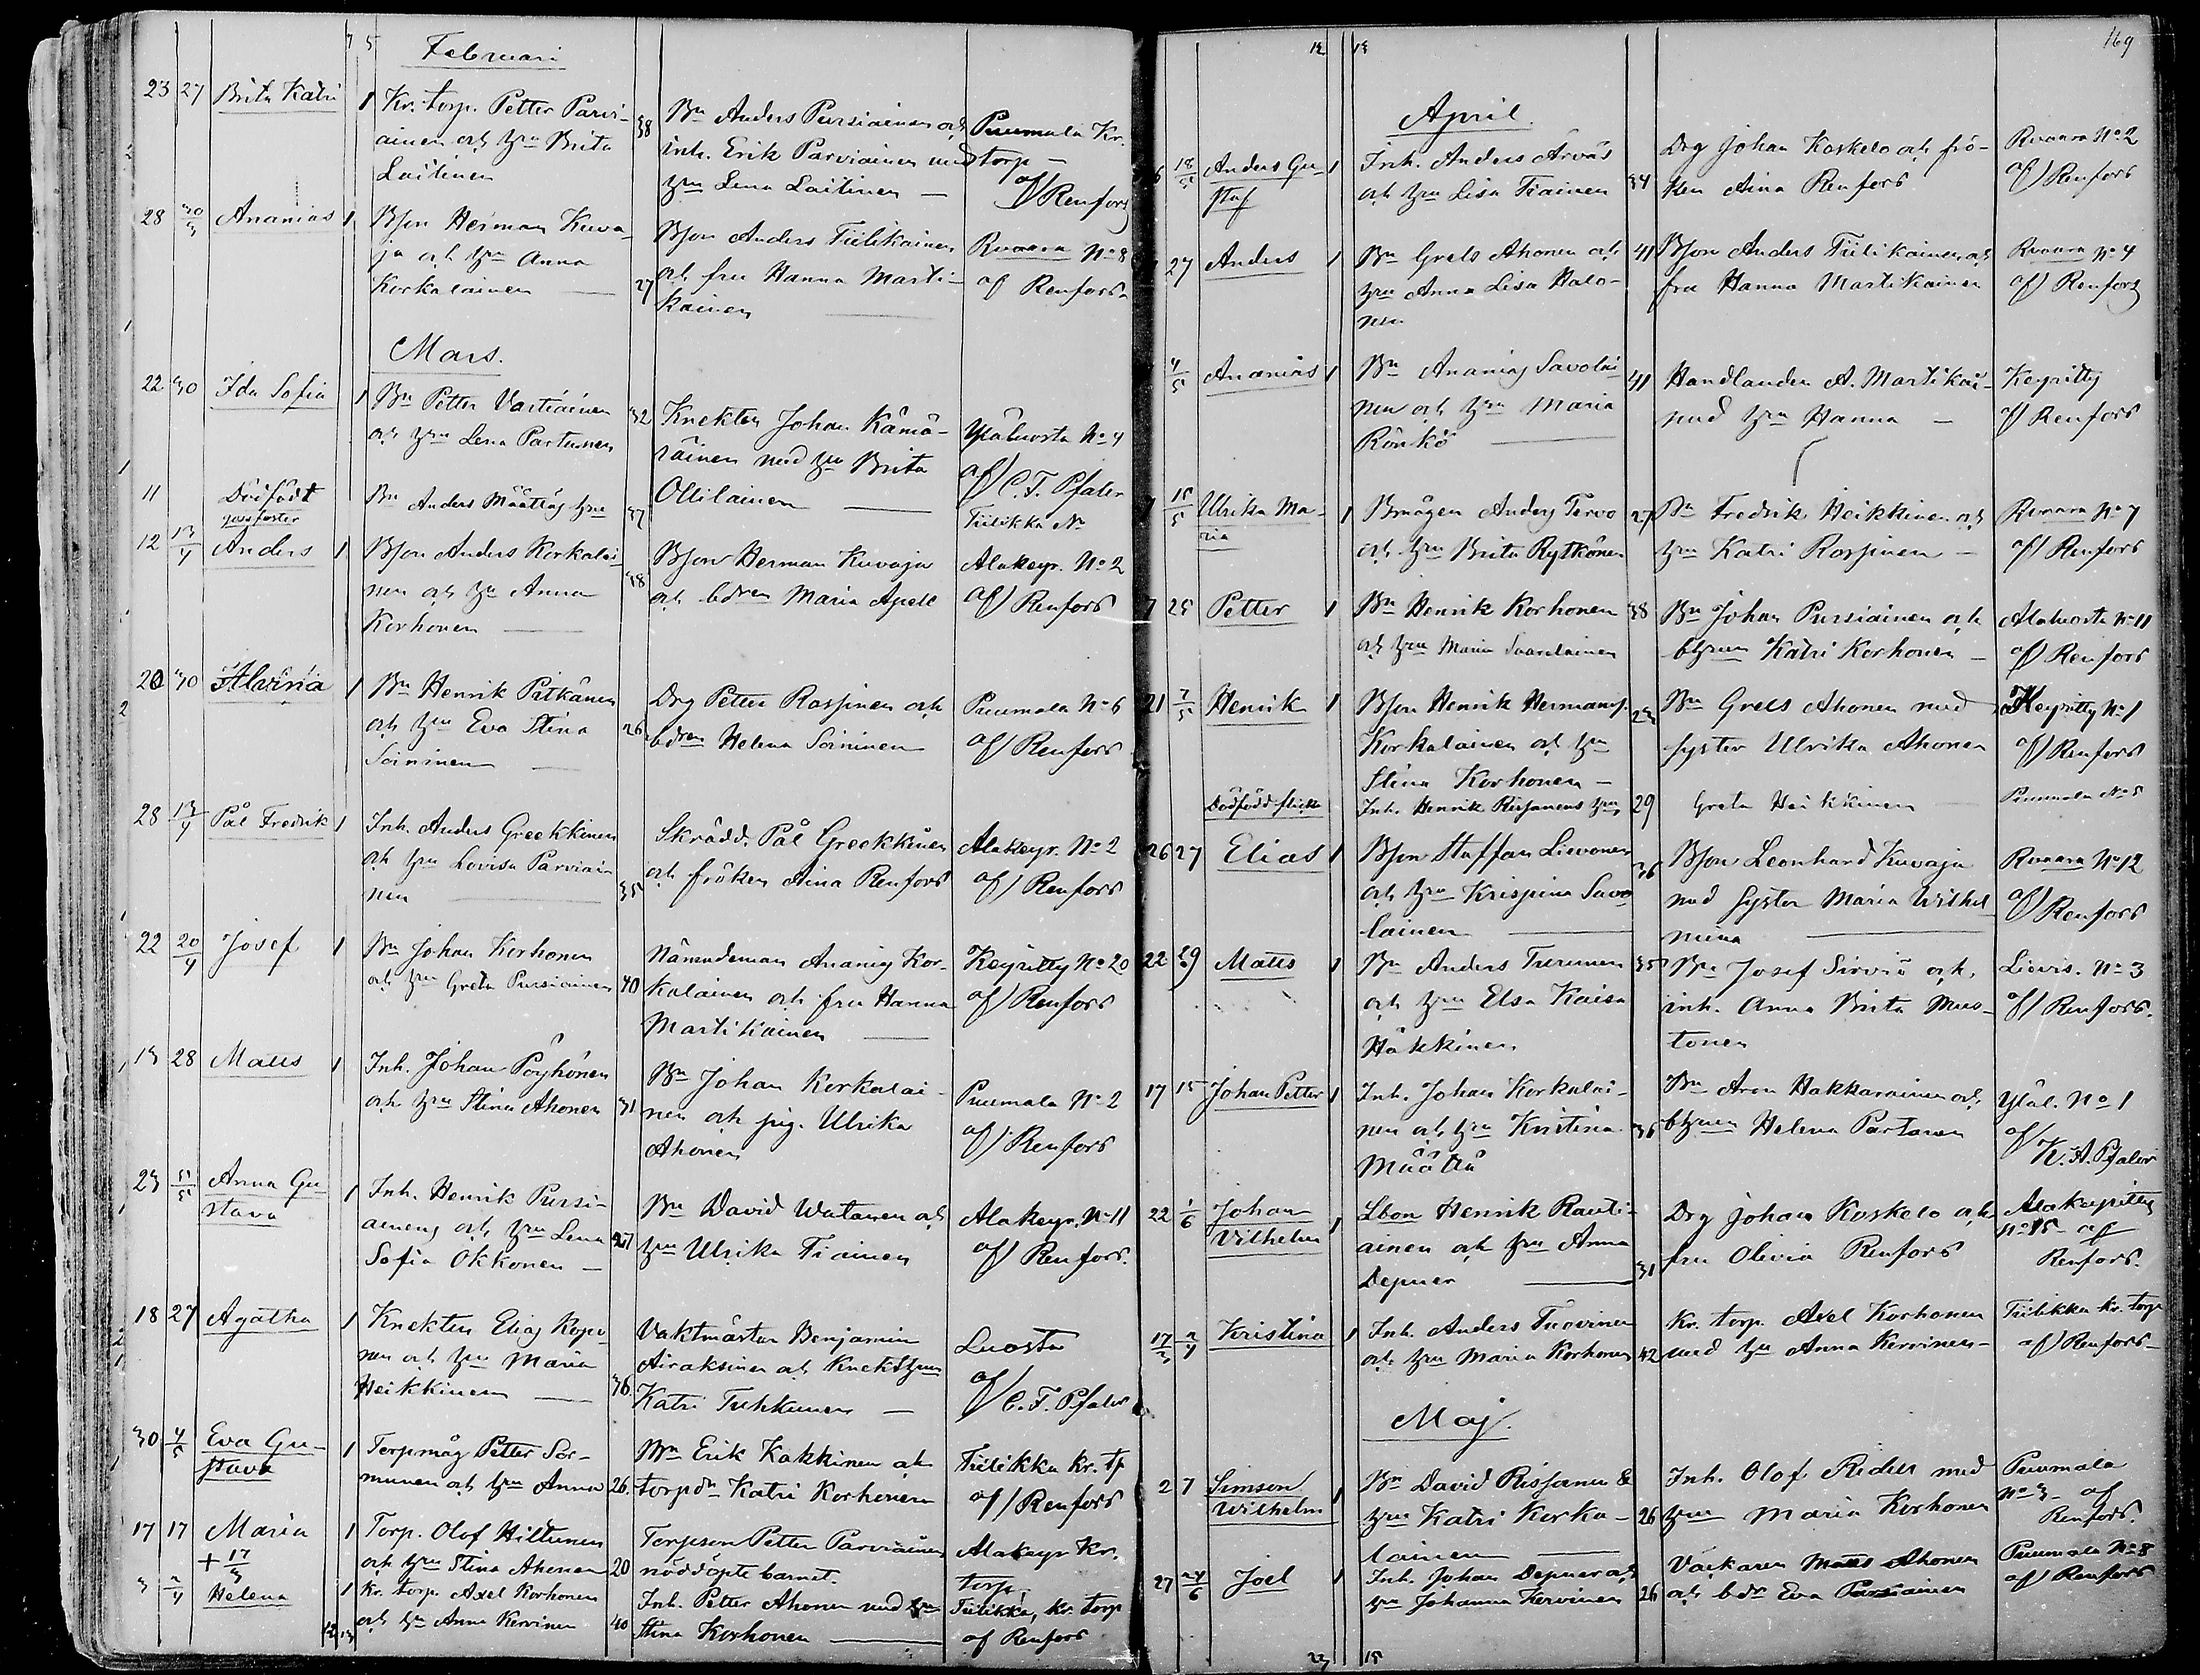 7 5
Februari
23 27 Brita Katri 1 Kr. torp. Petter Parvi-
ainen och hu Brita
Laitinen
38 Bn Anders Pursiainen och
inh. Erik Parviainen med
hu Lena Laitinen —
Puumala Kr.
torp —
af Renfors
28 30/3 Ananias 1 Bson Herman Kuva-
ja och hu Anna
Korkalainen —
27 Bson Anders Tiilikainen
och fru Hanna Marti-
kainen —
Ruaara No 8
af Renfors
Mars.
22 30 Ida Sofia 1 Bn Petter Vartiainen
och hu Lena Partanen
32 Knekten Johan Kämä-
räinen med hu Brita
Ollilainen —
Yläluosta No 4
af C. F. Pfaler
11 Dödfödt
gossfoster
Bn Anders Määttäs hu 37
Tiilikka No
12 13/4 Anders 1 Bson Anders Korkalai-
nen och hu Anna
Korhonen —
38 Bson Herman Kuvaja
och bdren Maria Apell
Alakeyr. No 2
af Renfors
20 30 Alviina 1 Bn Henrik Pitkänen
och hu Eva Stina
Soininen —
26 Drg Petter Rossinen och
bdren Helena Soininen
Puumala No 6
af Renfors
28 13/4 Pål Fredrik 1 Inh. Anders Greekkinen
och hu Lovisa Parviai-
nen —
35 Skrädd. Pål Greekkinen
och fröken Aina Renfors
Alakeyr. No 2
af Renfors
22 20/4 Josef 1 Bn Johan Korhonen
och hu Greta Pursiainen
40 Nämndeman Ananias Kor-
kalainen och fru Hanna
Martikainen —
Keyritty No 20
af Renfors
13 28 Matts 1 Inh. Johan Pöyhönen
och hu Stina Ahonen
31 Bn Johan Korkalai-
nen och pig. Ulrika
Ahonen
Puumala No 2
af Renfors
23 5/5 Anna Gu-
stava
1 Inh. Henrik Pursi-
ainens och hu Lena
Sofia Okkonen —
27 Bn David Watanen och
hu Ulrika Tiainen
Alakeyr. No 11
af Renfors.
18 27 Agatha 1 Knekten Elias Repo-
nen och hu Maria
Heikkinen —
36 Vaktmästar Benjamin
Airaksinen och Knekthun
Katri Tuhkunen —
Luosta
af C. F. Pfaler
30 4/5 Eva Gu-
stava
1 Torpmåg Petter Sor-
munen och hu Anna 26.
Bn Erik Kakkinen och
torpdr Katri Korhonen
Tiilikka kr. tp
af Renfors
17 17 Maria
+ 17/3
1 Torp. Olof Hiltunen
och hu Stina Ahonen 20
Torpson Petter Parviainen
nöddöpte barnet.
Alakeyr Kr.
torp.
3 2/4 Helena 1 Kr. torp. Axel Korhonen
och hu Anna Kervinen 40
Inh. Petter Ahonen med hu
Stina Korhonen —
Tiilikka, kr. torp
af Renfors
12 13
12 13
169
April.
6 18/5 Anders Gu-
staf
1 Inh. Anders Arväs
och hu Lisa Tiainen
34 Drg Johan Koskelo och frö-
ken Aina Renfors
Ruaara No 2
af Renfors
27 Anders 1 Bn Grels Ahonen och
hu Anna Lisa Halo-
nen
41 Bson Anders Tiilikainen och
fru Hanna Martikainen
Ruaara No 4
af Renfors
4/5 Ananias 1 Bn Ananias Savolai-
nen och hu Maria
Rönkö —
41 Handlanden A. Martikai-
med hu Hanna —
Keyritty
af Renfors
7 15/5 Ulrika Ma-
ria
1 Bmågen Anders Tervo
och hu Brita Rytkönen
27 Bn Fredrik Heikkinen och
hu Katri Rossinen —
Ruaara No 7
af Renfors
7 25 Petter 1 Bn Henrik Korhonen
och hu Maria Saarelainen
38 Bn Johan Pursiainen och
bhun Katri Korhonen —
Alaluosta No 11
af Renfors
21 7/5 Henrik 1 Bson Henrik Hermans.
Korkalainen och hu
Stina Korhonen —
23 Bn Grels Ahonen med
syster Ulrika Ahonen
Keyritty No 1
af Renfors
Dödfödd flicka
Inh. Henrik Rissanens hu 29
Greta Heikkinen
Puumala No 5
26 27 Elias 1 Bson Staffan Lievonen
och hu Krispina Savo
lainen —
36 Bson Leonhard Kuvaja
med syster Maria Wilhel
mina —
Ruaara No 12
af Renfors
22 29 Matts 1 Bn Anders Turunen
och hu Elsa Kaisa
Häkkinen
35 Bn Josef Sirviö och
inh. Anna Brita Mus-
tonen
Lievis. No 3
af Renfors.
17 15 Johan Petter 1 Inh. Johan Korkalai-
nen och hu Kristina
Määttä
36 Bn Aron Hakkarainen och
bhun Helena Partanen
Yläl. No 1
af K. A. Pfaler
22 1/6 Johan
Vilhelm
1 Lbon Henrik Rauti-
ainen och hu Anna
Depner —
31 Drg Johan Koskelo och
fru Olivia Renfors
Alakeyritty
No 15 af
Renfors.
17/3 2/4 Kristina 1 Inh. Anders Tuovinen
och hu Maria Korhonen
42 Kr. torp. Axel Korhonen
med hu Anna Kervinen —
Tiilikka kr. torp
af Renfors —
Maj.
2 7 Simson
Wilhelm
1 Bn David Rissanen &
hu Katri Korka-
lainen —
26 Inh. Olof Riders med
hun Maria Korhonen
Puumala
No 3 af
Renfors.
27 24/6 Joel 1 Inh. Johan Depner och
hu Johanna Kervinen
26 Väckaren Matts Ahonen
och bdr Eva Pursiainen
Puumala No 8
af Renfors
23 15